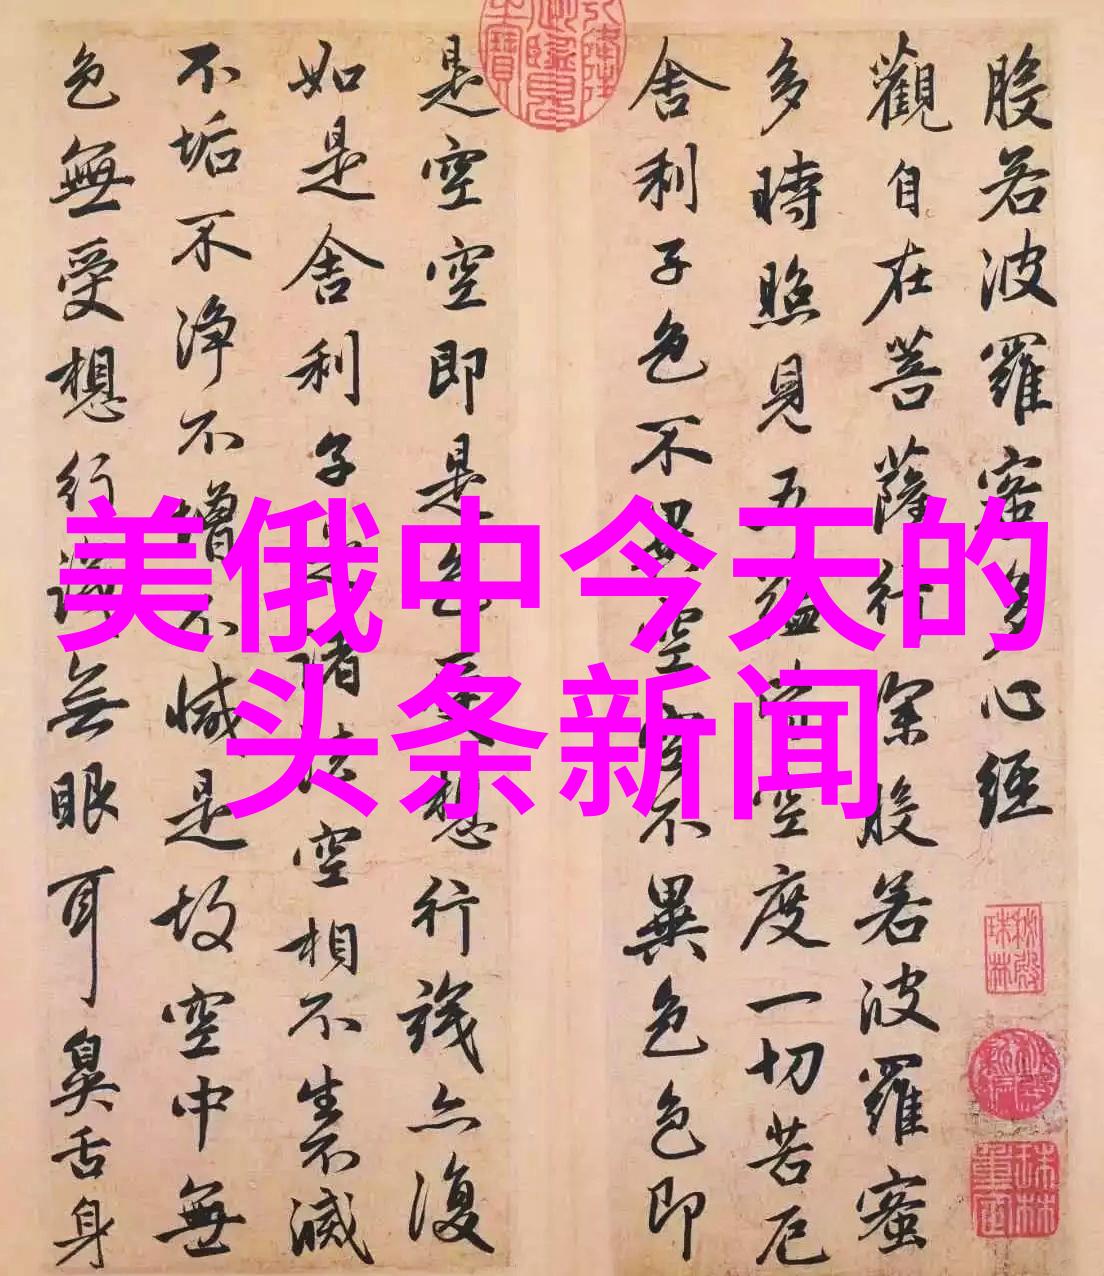 般若波羅蜜多心經
觀自在菩薩行深般若波羅蜜
多時照見五蘊皆空度一切苦厄
舍利子色不異空空不異色色即
是空空即是色受想行識亦復
如是舍利子是諸法空相不生不滅
不垢不淨不增不減是故空中無
色無受想行識無眼耳鼻舌身
美俄中今天的
头条新闻